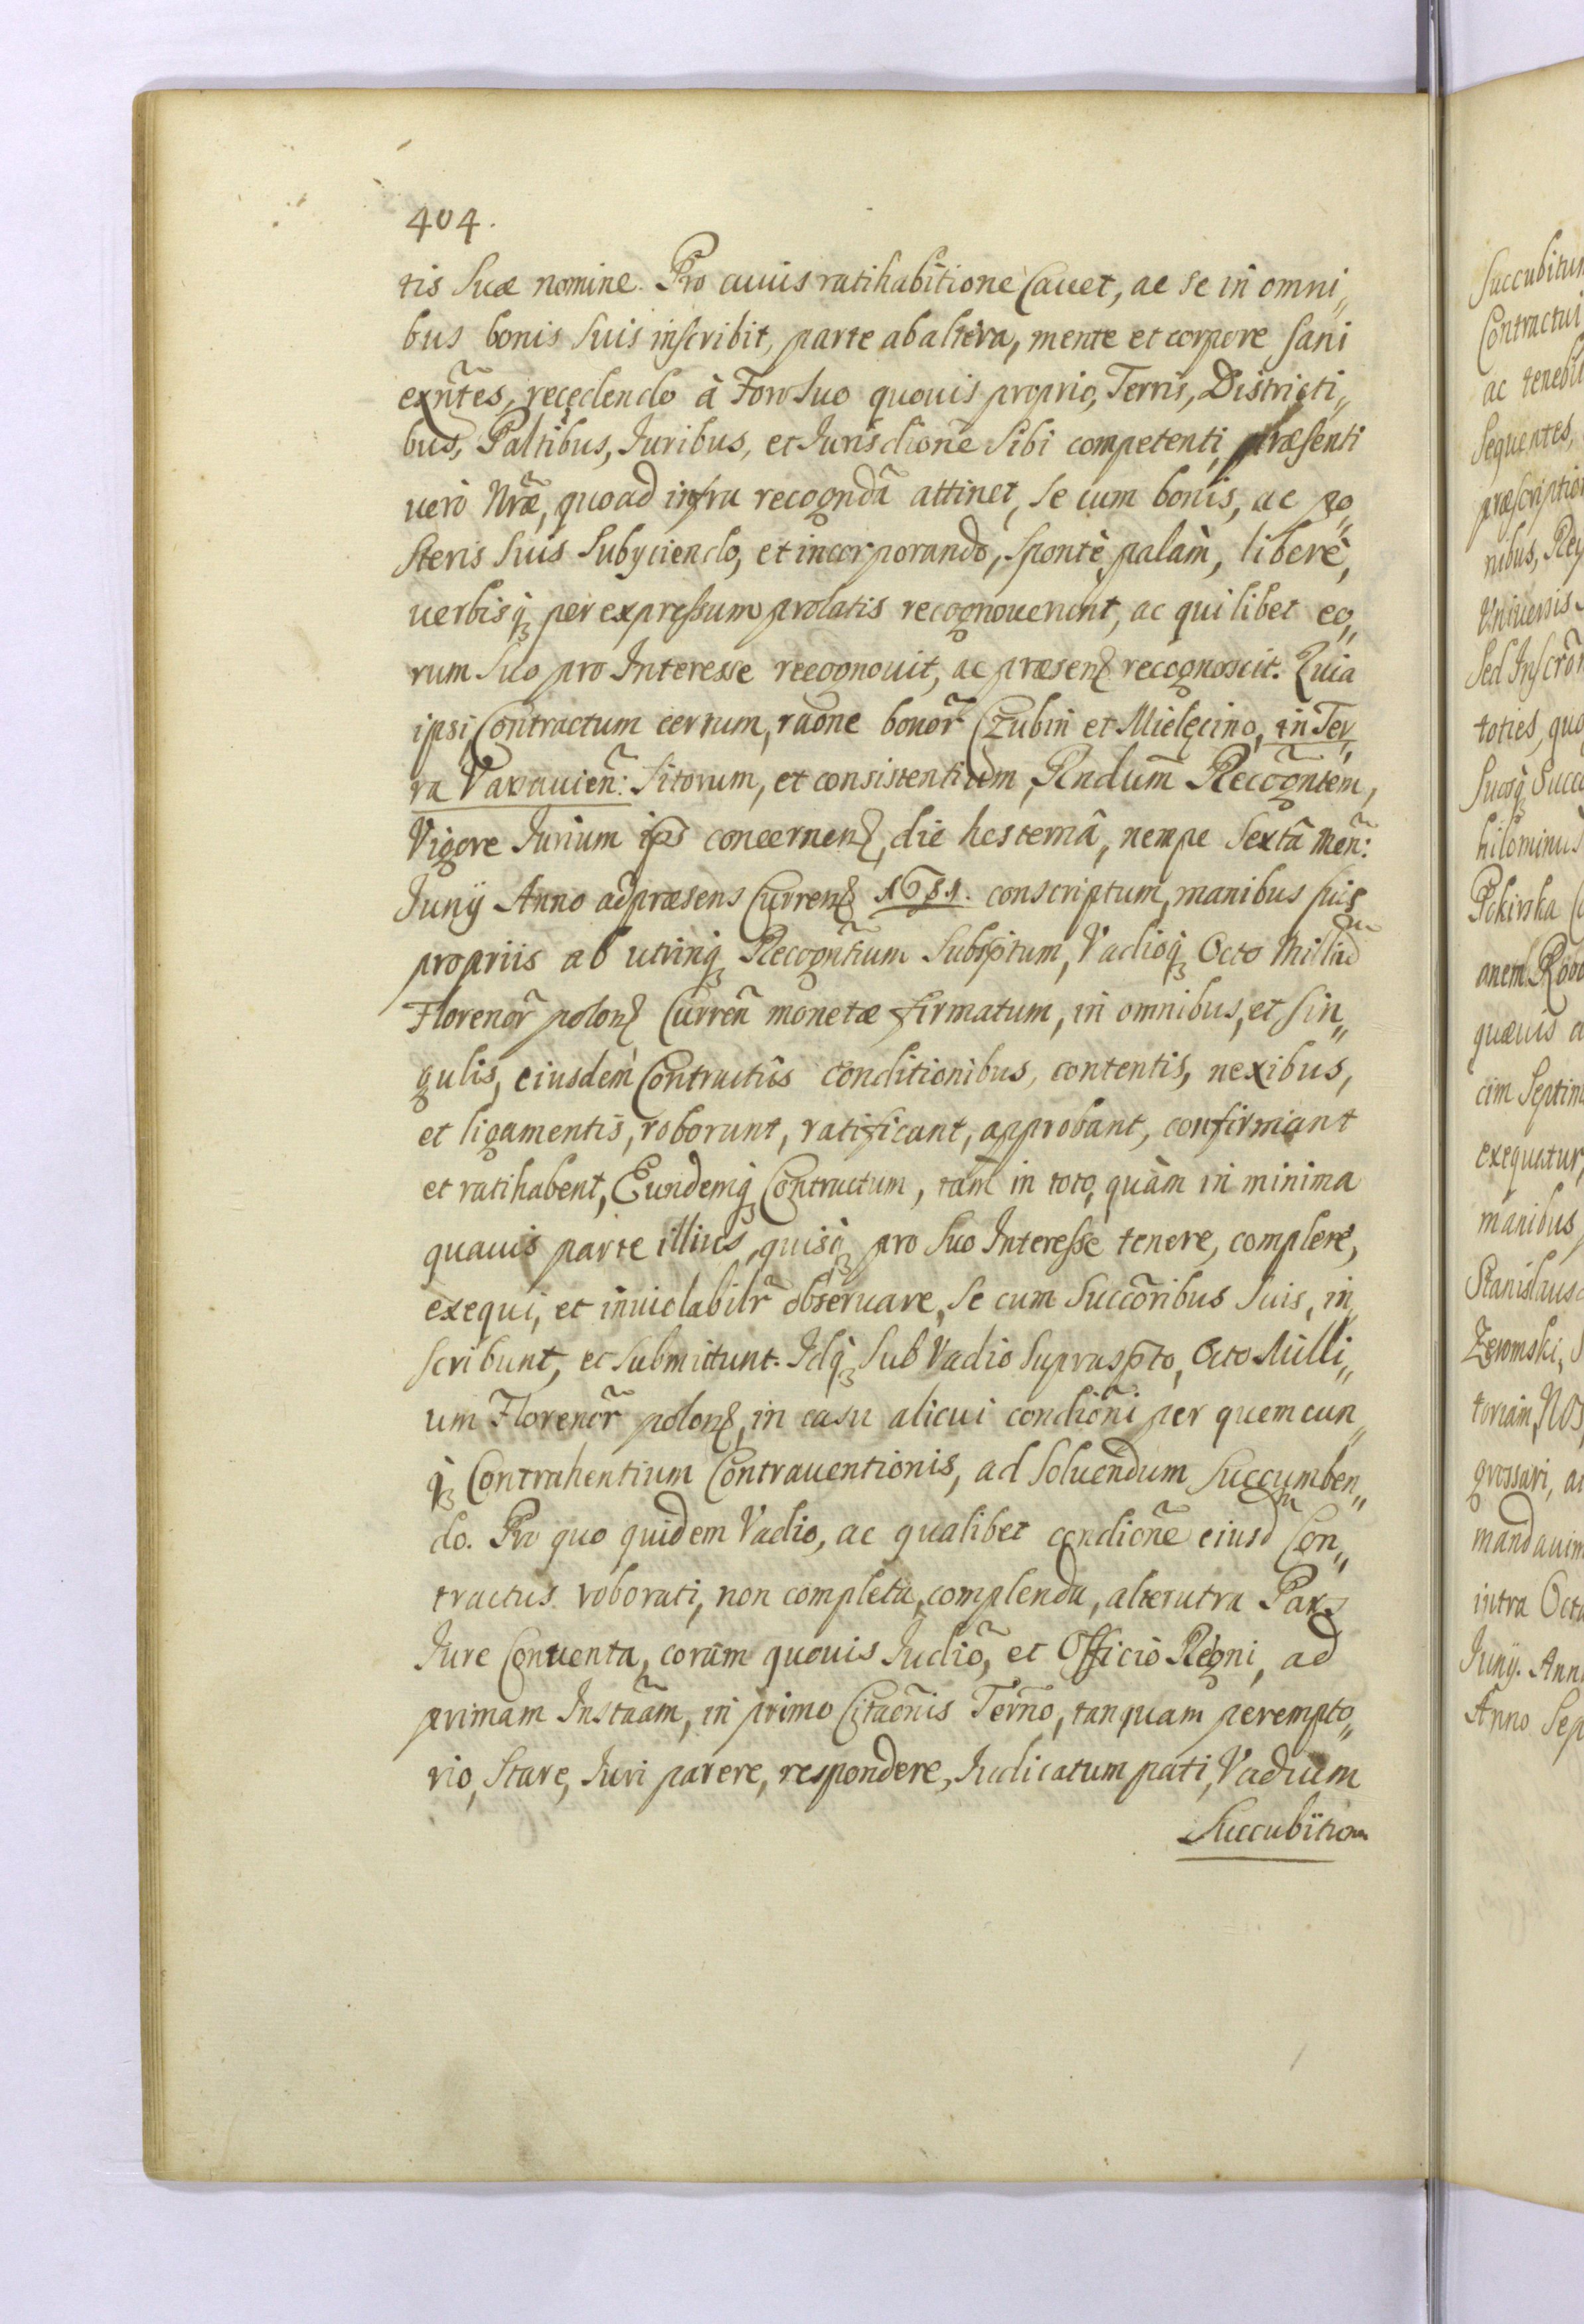 404.
tis suæ nomine. Pro cuius ratihabitione Cauet, ac se in omni„
bus bonis suis inscribit, parte ab altera, mente et corpore sani
exñtes, recedendo à Foro suo quouis proprio, Terris, Districti„
bus, Paltibus, Iuribus, et Iurisdione sibi competenti, præsenti
uerò Nræ, quoad infra recogndã attinet, se cum bonis, ac po„
steris suis subyciendo, et incorporando, spontè, palàm, liberè,
uerbisq; per expressum prolatis recognouerunt, ac quilibet eo„
rum suo pro Interesse recognouit, ac præsen recognoscit. Quia
ipsi Contractum certum, raone bonor̃ Czubin et Mielęcino, in Ter„
ra Varauieñ: sitorum, et consistentium, Pndum̃ Recogntem̃,
Vigore Iurium ips concernen, die hesternâ, nempe sextâ Meñ:
Iuny Anno ad præsens Curren 1681. conscriptum, manibus suis
propriis ab utrinq; Recogñtium subsptum, Vadioq; Octo Milliũ
Florenor̃ polon Curreñ monetæ firmatum, in omnibus, et sin„
gulis, eiusdem Contractûs conditionibus, contentis, nexibus,
et ligamentis, roborunt, ratificant, approbant, confirmant
et ratihabent, Eundemq; Contractum, tam in toto, quàm in minima
quauis parte illius, quisq; pro suo Interesse tenere, complere,
exequi, et inuiolabilr̃ obseruare, se cum succõribus suis, in„
scribunt, et submittunt. Idq; sub Vadio supraspto, Octo Milli„
um Florenor̃ polon, in casu alicui condiõni per quemcun„
q; Contrahentium Contrauentionis, ad soluendum succumben„
do. Pro quo quidem Vadio, ac qualibet condiõne eiusd̃ Con„
tractus roborati, non completa, complenda, alterutra Pars
Iure Conuenta, coram quouis Iudiõ, et Officio Regni, ad
primam Instãam, in primo Citaõnis Termo, tanquam perempto„
rio, stare, Iuri parere, respondere, Iudicatum pati, Vadium
Succubitum